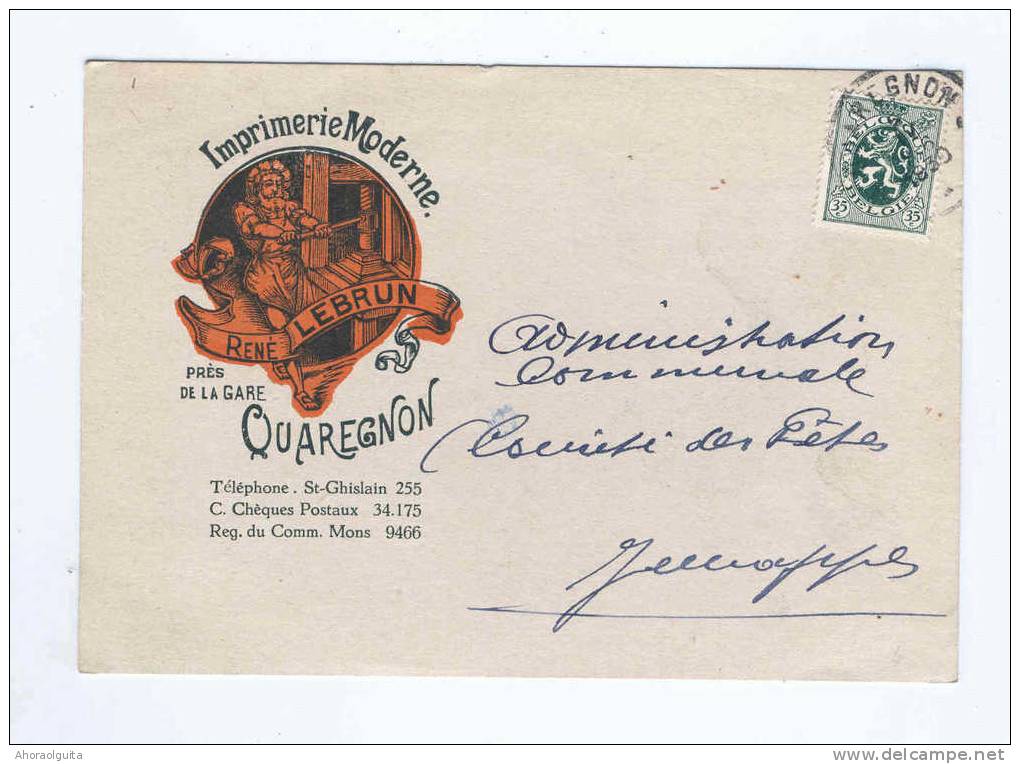 Imprimerie Moderne.
RENÉ LEBRUN
PRÈS
DE LA GARE
QUAREGNON
Téléphone. St-Ghislain 255
C. Chèques Postaux 34.175
Reg. du Comm. Mons 9466
EGNON
BELGIQUE
BELGIË
35c 35c
Administration
Communale
Comité des Fêtes
Jemappes
Ahoraolguita
www.delcampe.net